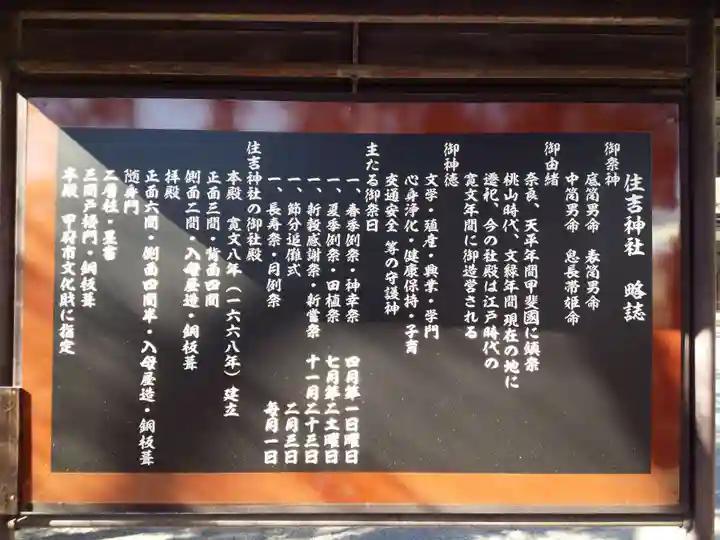 住吉神社 略誌
御祭神
底筒男命 表筒男命
中筒男命 息長帯姫命
御由緒
奈良、天平年間甲斐國に鎮祭
桃山時代、文緑年間現在の地に
遷祀、今の社殿は江戸時代の
寛文年間に御造営される
御神徳
文学・殖産・興業・学門
心身浄化・健康保持・子育
交通安全 等の守護神
主たる御祭日
一、春季例祭・神幸祭 四月第一日曜日
一、夏季例祭・田植祭 七月第二土曜日
一、新穀感謝祭・新嘗祭 十一月二十三日
一、節分追儺式 二月三日
一、長寿祭・月例祭 毎月一日
住吉神社の御社殿
本殿 寛文八年(一六六八年)建立
正面三間・背面四間
側面二間・入母屋造・銅板葺
拝殿
正面六間・側面四間半・入母屋造・銅板葺
随身門
三間戸楼門・銅板葺
本殿 甲府市文化財に指定